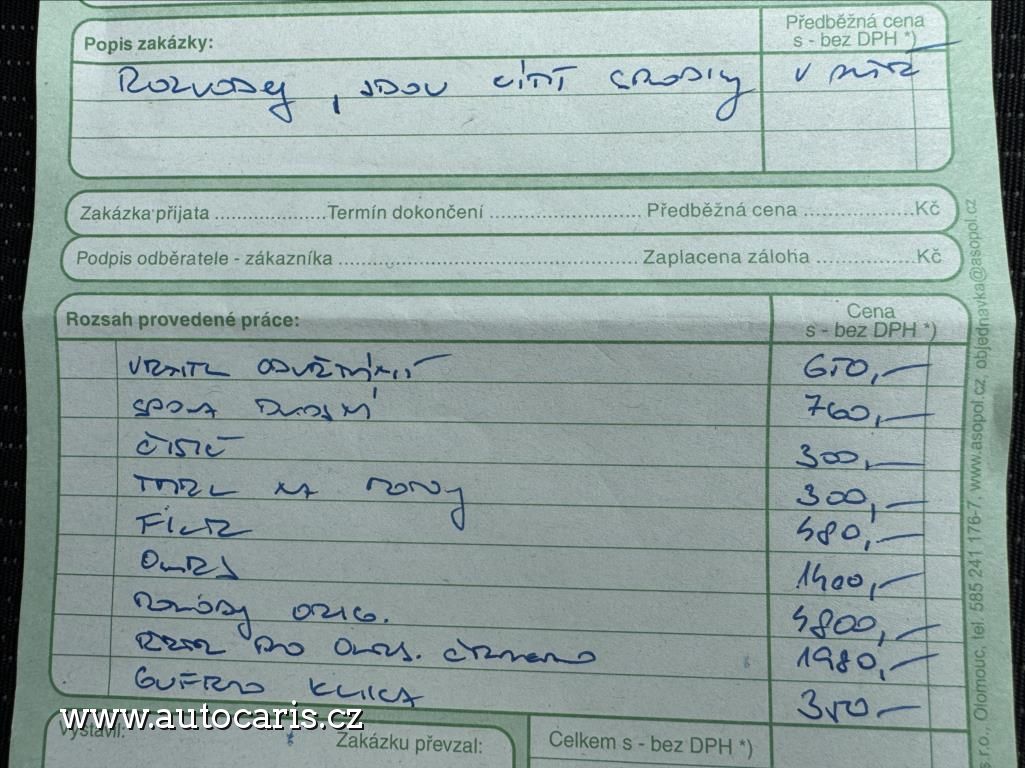 Popis zakázky:
Předběžná cena
s - bez DPH *)
ROZVODY, JDOU CÍTIT SPODKY V
Zakázka přijata ...................Termín dokončení .......................... Předběžná cena ...................Kč
Podpis odběratele - zákazníka ..................................................... Zaplacena záloha .................Kč
Rozsah provedené práce:
Cena
s - bez DPH *)
650,-
SPONA 760,-
ČISTIČ 300,-
NA 300,-
FILTR 480,-
OLEJ 1400,-
ROZVODY ORIG. 4800,-
PRO 1980,-
GUFERO KLIKA 350-
Vystavil:
Zakázku převzal:
Celkem s - bez DPH *)
s r.o., Olomouc, tel. 585 241 176-7, www.asopol.cz, objednavka@asopol.cz
www.autocaris.cz